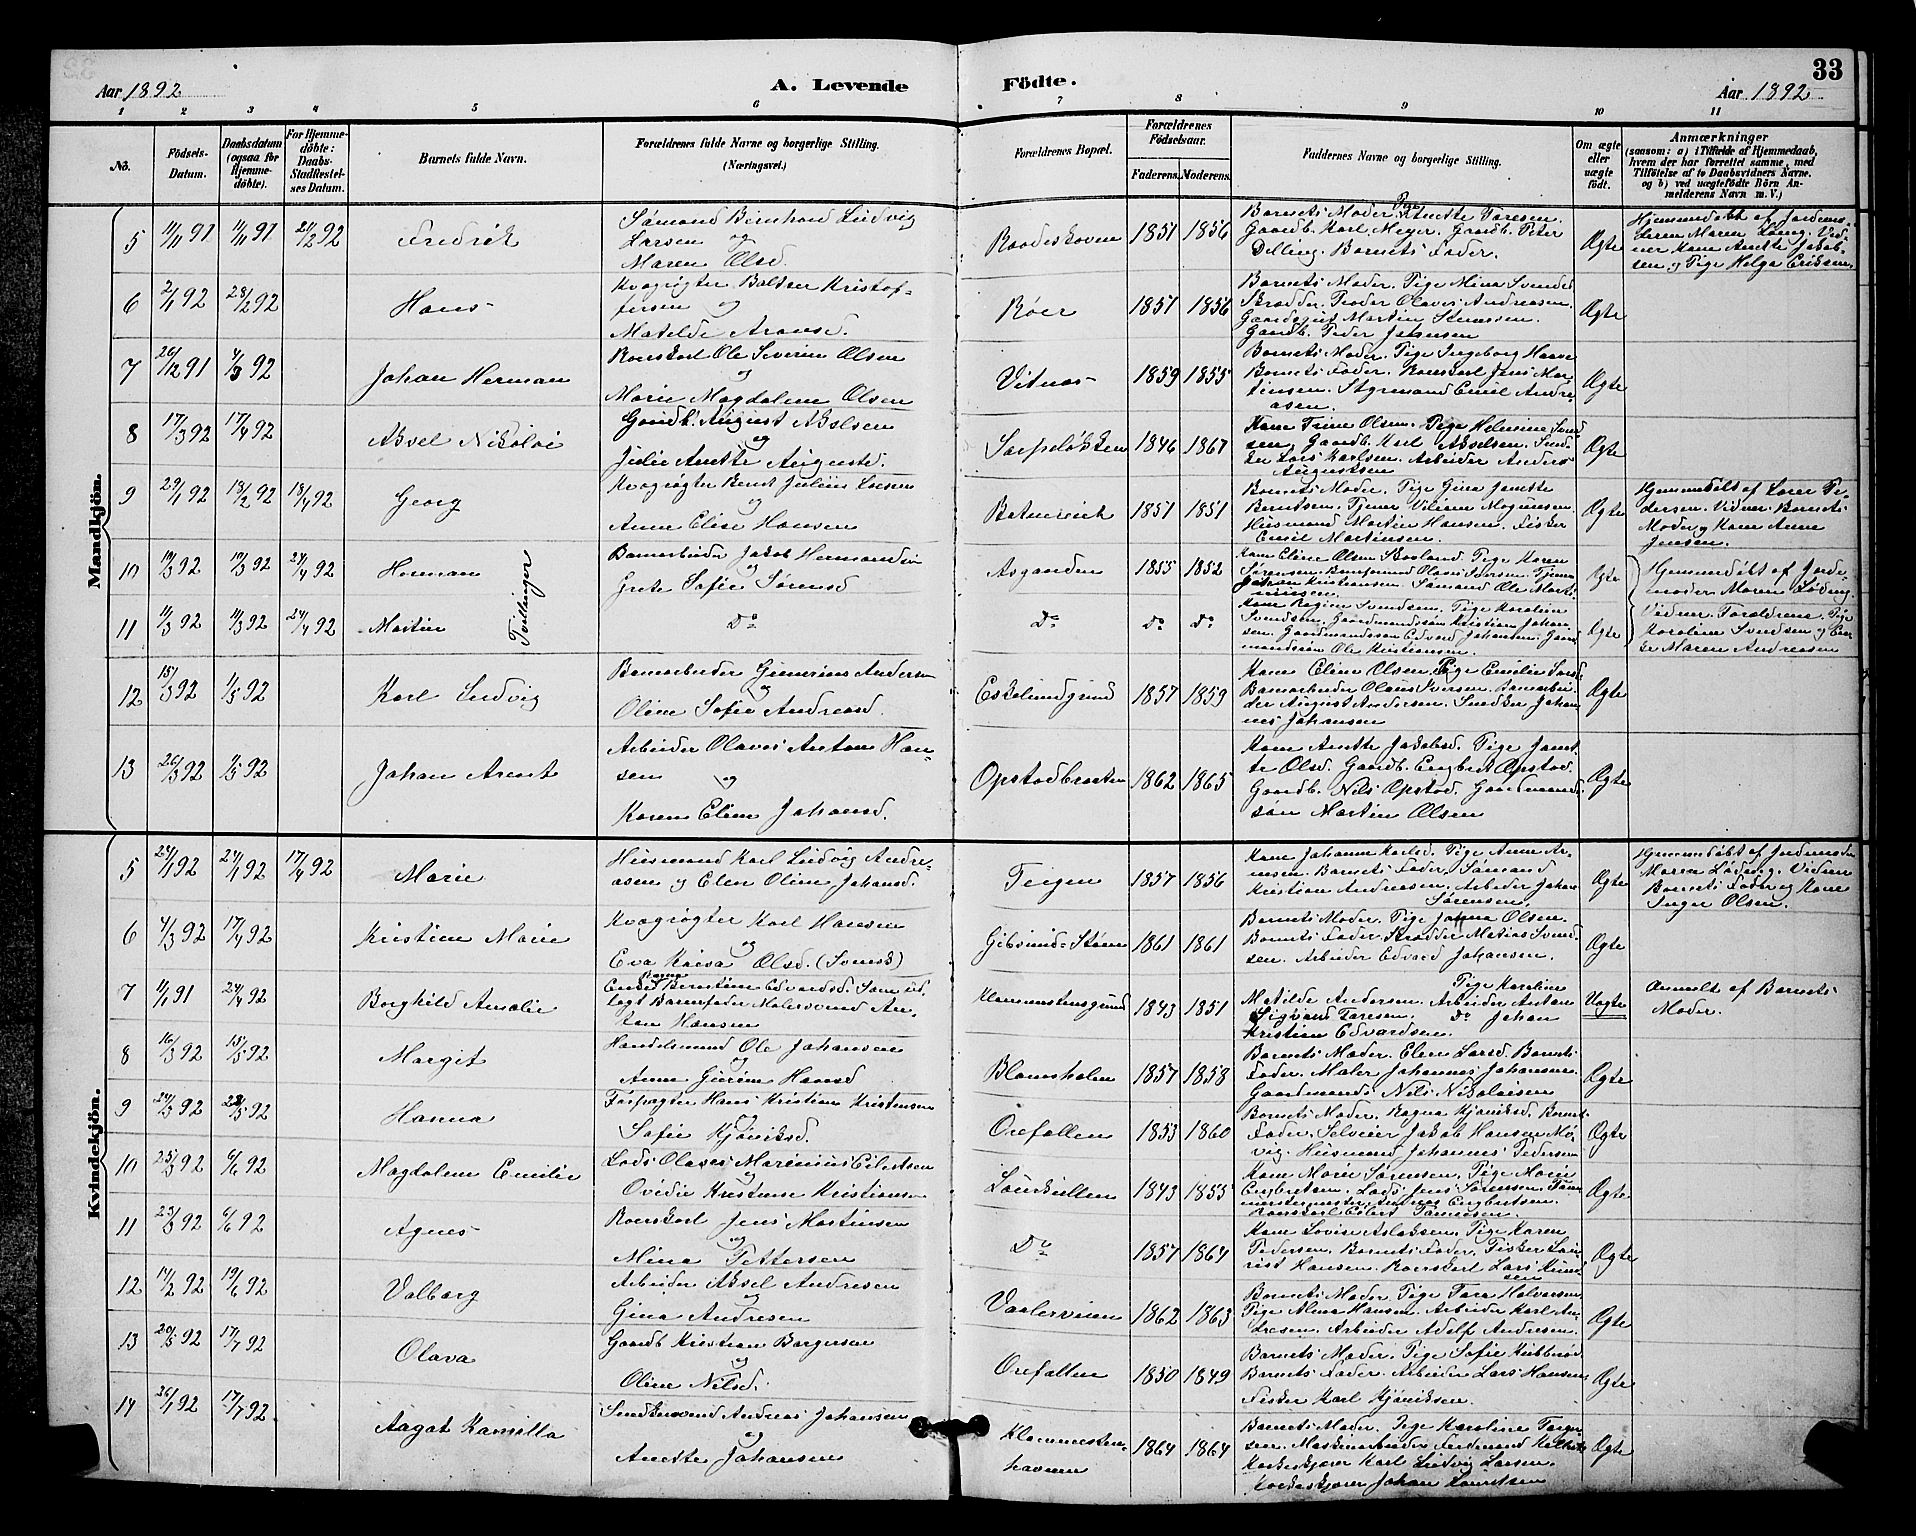 Aar 1892
A. Levende
Födte.
33
Aar 1892
1 2 3 4 5 6 7 8 9 10 11
No.
Födsels-Datum.
Daabsdatum (ogsaa for Hjemme-döbte).
For Hjemme-döbte: Daabs-Stadfestel-ses Datum.
Barnets fulde Navn.
Forældrenes fulde Navne og borgerlige Stilling. (Næringsvei.)
Forældrenes Bopæl.
Forældrenes Födselsaar.
Faderens. Moderens.
Faddernes Navne og borgerlige Stilling.
Om ægte eller uægte födt.
Anmærkninger
(saasom: a) i Tilfælde af Hjemmedaab, hvem der har forrettet samme, med Tilföielse af to Daabsvidners Navne. og b) ved uægtefödte Börn Anmelderens Navn m. V.)
Mandkjön.
5 11/11 91 11/11 91 21/2 92 Fredrik
Sømand Bernhard Ludvig
Larsen og
Maren Olsd.
Raadeskoven 1851 1856
Barnets Moder. Pige Anette Taresen.
Gaardb. Karl Meyer. Gaardb. Peter
Dilling. Barnets Fader.
Ægte
Hjemmedøbt af Jordemo-
deren Maren Løding. Vid-
ner Kone Anette Jakob-
sen og Pige Helga Eriksen.
6 2/1 92 28/2 92 Hans
Kvægrøgter Baltser Kristof-
fersen og
Matilde Aronsd.
Røer 1851 1856
Barnets Moder. Pige Mina Svendsd
Skrædder Peder Olaves Andreasen.
Gaardsgut Martin Svensen.
Gaardb. Peder Johansen
Ægte
7 26/12 91 4/3 92 Johan Herman
Roerskarl Ole Severin Olsen
og
Marie Magdalene Olsen
Vitnæs 1859 1855
Barnets Moder. Pige Ingeborg Marie
Barnets Fader. Roerskarl Jens Mar-
tinsen. Styrmand Emil Andre-
asen.
Ægte
8 17/3 92 17/4 92 Aksel Nikolai
Gaardb. August Akselsen
og
Julie Anette Augustd.
Sarpeløkken 1846 1867
Kone Trine Olsen. Pige Helmine Svend
sen. Gaardb. Karl Akselsen. Smed-
ker Lars Karlsen. Arbeider Anders
Augustsen
Ægte
9 29/1 92 18/2 92 18/4 92 Georg
Kvægrøgter Bernt Julius Larsen
og
Anne Elise Hansen
1851 1851
Barnets Moder. Pige Gina Janette
Berntsen. Tjener Viliam Magnussen
Husmand Martin Hansen. Fisker
Emil Martinsen.
Ægte
Hjemmedøbt af Lærer Pe-
dersen. Vidner: Barnets
Moder og Kone Anne
Jensen.
10 19/3 92 19/3 92 24/4 92 Herman
Tvillinger
Banearbeider Jakob Hermansen
og
Grete Sofie Sørensd
Asganden 1855 1852
Kone Elene Olsen Skovland. Pige Karen
Sørensen. Baneformand Olaus Iversen. Tjener
Johan Kristiansen. Sømand Ole Mart-
insen.
Ægte
Hjemmedøbt af Jorde-
moder Maren Løding.
11 19/3 92 19/3 92 24/4 92 Martin
Do
Do Do Do
Kone Regine Svendsen. Pige Karoline
Svendsen. Gaardmandssøn Kristian Johan
sen. Gaardmandssøn Edvard Johansen. Gaard
mandssøn Ole Kristiansen.
Ægte
Vidner: Forældrene. Pige
Karoline Svendsen og En-
ke Maren Andreasen
12 15/3 92 1/5 92 Karl Ludvig
Banearbeider Gunerius Andersen
og
Oline Sofie Andreasd.
Eskelundgrund 1857 1859
Kone Elene Olsen. Pige Emilie
Banearbeider Olaus Iversen. Banearbei-
der August Andersen. Snedker Johan-
nes Johansen
Ægte
13 26/3 92 1/5 92 Johan Arent
Arbeider Olaves Anton Han-
sen og
Karen Elene Johansd.
Opstadbraaten 1862 1865
Kone Anette Jakobsd. Pige Janet-
te Olsd. Gaardb. Engbret Opstad.
Gaardb. Nils Opstad. Gaardmands-
søn Martin Olsen
Ægte
Kvindekjön.
5 24/1 92 24/1 92 17/4 92 Marie
Husmand Karl Ludvig Andre-
asen og Elen Oline Johansd.
Teigen 1857 1856
Kone Johanne Karlsd. Pige Anne Ar-
nesen. Barnets Fader. Sømand
Kristian Andreasen. Arbeider Johan
Sørensen.
Ægte
Hjemmedøbt af Jordemoder
Maren Løding. Vidner
Barnets Fader og Kone
Inger Olsen.
6 4/3 92 17/4 92 Kristine Marie
Kvægrøgter Karl Hansen
og
Eva Kaisa Olsd. (Svensk)
Gibsund-Støen 1861 1861
Barnets Moder. Pige Johanna Olsen.
Barnets Fader. Skrædder Matias Svend-
sen. Arbeider Edvard Johansen.
Ægte
7 11/1 91 24/4 92 Borghild Amalie
Enke Berntine Edvardsd.
lagt Barnefader Malersvend An-
ton Hansen
Klemmetensgrund 1843 1851
Pige Karoline
Matilde Andersen. Arbeider Anton
Sigvand Taresen. Do Johan
Kristian Edvardsen.
Uægte
Anmeldt af Barnets
Moder.
8 16/3 92 15/5 92 Margit
Handelsmand Ole Johansen
og
Anne Gurine Hansd
Blomsholm 1857 1858
Barnets Moder. Elene Larsd. Barnets
Fader. Maler Johannes Johansen.
Gaardmands Nils Nikolaisen
Ægte
9 24/3 92 22/5 92 Hanna
Forpagter Hans Kristian Kristensen
og
Sofie Kjøniksd.
Orefallen 1853 1860
Barnets Moder. Ragna Kjøniksd. Barnets
Fader. Selveier Jakob Hansen Mø-
vig. Husmand Johannes Pedersen
Ægte
10 25/3 92 6/6 92 Magdalene Emilie
Lods Olaves Marinius Eilertsen
og
Ovidie Kristense Kristiansen
Laurkullen 1843 1855
Kone Marie Sørensen. Pige Marie
Engbretsen. Lods Jens Sørensen. Tøm-
mermester Andreas Engbretsen.
Roerskarl Eilert Tønnesen.
Ægte
11 23/3 92 6/6 92 Agnes
Roerskarl Jens Martinsen
og
Mina Pettersen
Do 1857 1864
Kone Lovise Aslaksen. Pige Karen
Pedersen. Barnets Fader. Fisker Lau-
rist Hansen. Roerskarl Lars Knud-
sen
Ægte
12 17/2 92 19/6 92 Valborg
Arbeider Aksel Andresen
og
Gina Andresen
Vaalerveien 1862 1863
Barnets Moder. Pige Tora Halvorsen
Pige Alma Hansen. Arbeider Karl An-
dresen. Arbeider Adolf Andresen.
Ægte
13 20/5 92 17/7 92 Olava
Gaardb Kristian Borgersen
og
Oline Nilsd.
Orefallen 1850 1849
Barnets Moder. Pige Sofie Kubberød
Barnets Fader. Arbeider Lars Hansen
Fisker Karl Kjøniksen.
Ægte
14 26/1 92 17/7 92 Aagot Kamilla
Snedkersvend Andreas Johansen
og
Anette Johansen
Klommesten-
havnen 1864 1864
Barnets Moder. Pige Karoline Torger
sen. Maskinarbeider Ferdinand
Karl Ludvig Larsen.
Johan Lauritsen
Ægte